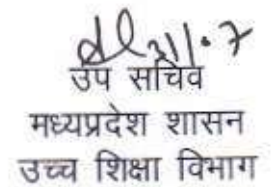 31.7
उप सचिव
मध्यप्रदेश शासन
उच्च शिक्षा विभाग